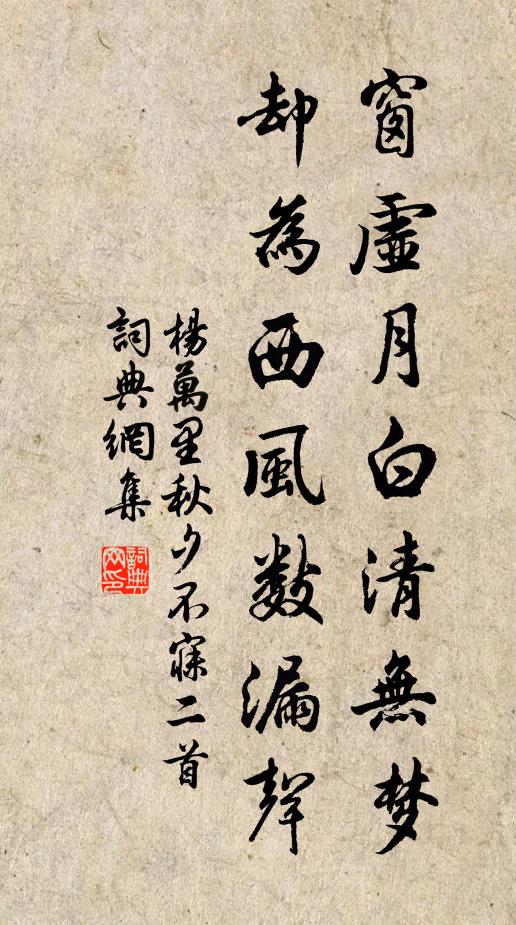 窗虛月白清無梦
却為西風数漏聲
楊萬里秋夕不寐二首
詞典網集
詞典网印